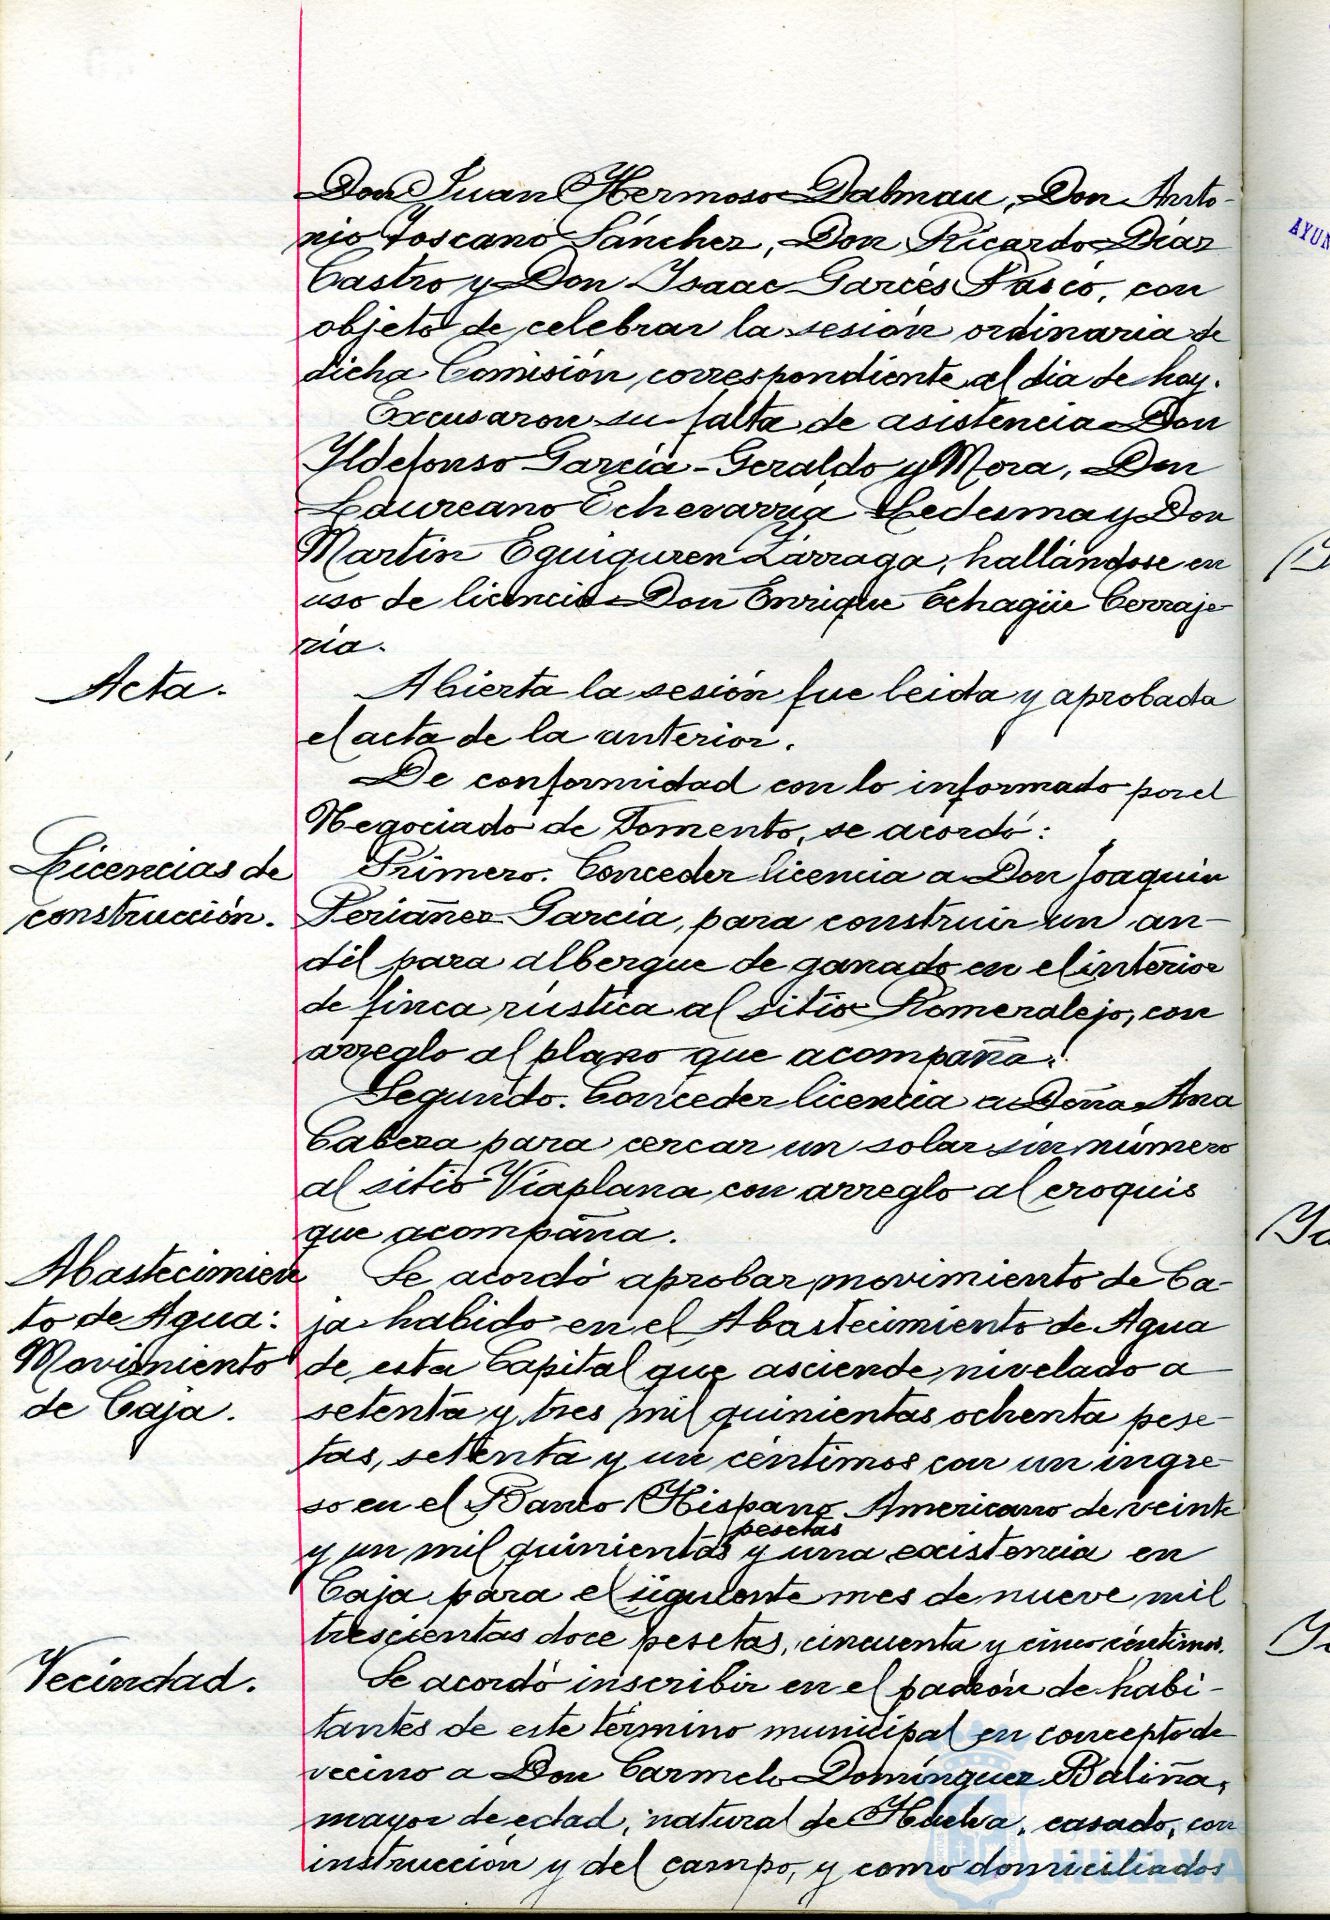 Don Juan Hermoso Dalmau, Don Anto-
nio Toscano Sánchez, Don Ricardo Díaz
Castro y Don Isaac Garcés Pascó, con
objeto de celebrar la sesión ordinaria de
dicha Comisión, correspondiente al dia de hoy.
Excusaron su falta de asistencia Don
Ildefonso García-Geraldo y Mora, Don
Laureano Echevarría Ledesma y Don
Martín Eguiguren Lárraga, hallándose en
uso de licencia Don Enrique Echagüe Cerraje-
ría.
Acta.
Abierta la sesión fue leida y aprobada
el acta de la anterior.
De conformidad con lo informado por el
Negociado de Fomento, se acordó:
Licencias de
construcción.
Primero. Conceder licencia a Don Joaquin
Periañez García, para construir un an-
dil para albergue de ganado en el interior
de finca rústica al sitio Romeralejo, con
arreglo al plano que acompaña.
Segundo. Conceder licencia a Doña Ana
Cabeza para cercar un solar sin número
al sitio Viaplana con arreglo al croquis
que acompaña.
Abastecimien
to de Agua:
Movimiento
de Caja.
Se acordó aprobar movimiento de Ca-
ja habido en el Abastecimiento de Agua
de esta Capital que asciende nivelado a
setenta y tres mil quinientas ochenta pese-
tas, setenta y un céntimos con un ingre-
so en el Banco Hispano Americano de veinte
pesetas
y un mil quinientas y una existencia en
Caja para el siguiente mes de nueve mil
trescientas doce pesetas, cincuenta y cinco céntimos.
Vecindad.
Se acordó inscribir en el padrón de habi-
tantes de este término municipal en concepto de
vecino a Don Carmelo Domínguez Baliña,
mayor de edad, natural de Huelva, casado, con
instrucción y del campo, y como domiciliados
AYUN
HUELVA